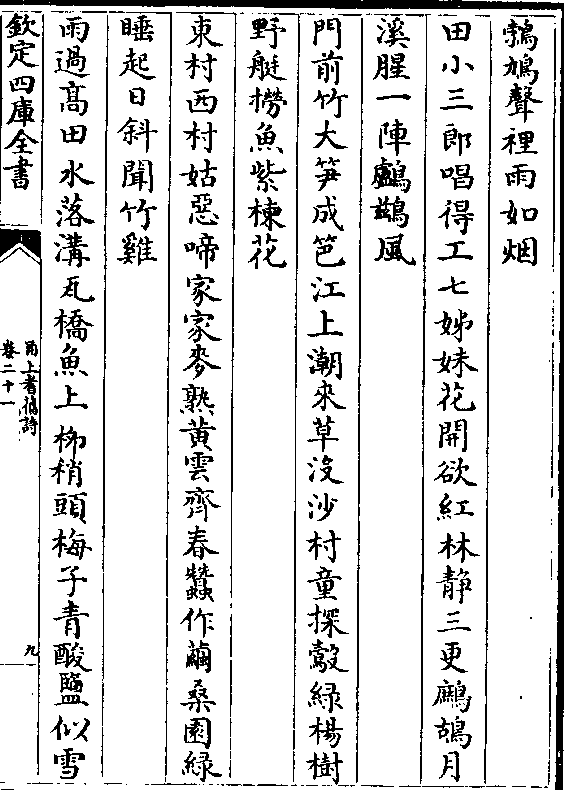 鵓鳩聲裡雨如烟
田小三郎唱得工七姊妹花開欲紅林静三更鷓鴣月
溪腥一陣鸕鷀風
門前竹大笋成笆江上潮來草沒沙村童探鷇緑楊樹
野艇撈魚紫楝花
東村西村姑惡啼家家麥熟黄雲齊春蠶作繭桑園緑
睡起日斜聞竹雞
雨過髙田水落溝瓦橋魚上栁稍頭梅子青酸鹽似雪
欽定四庫全書
卷二十一
九